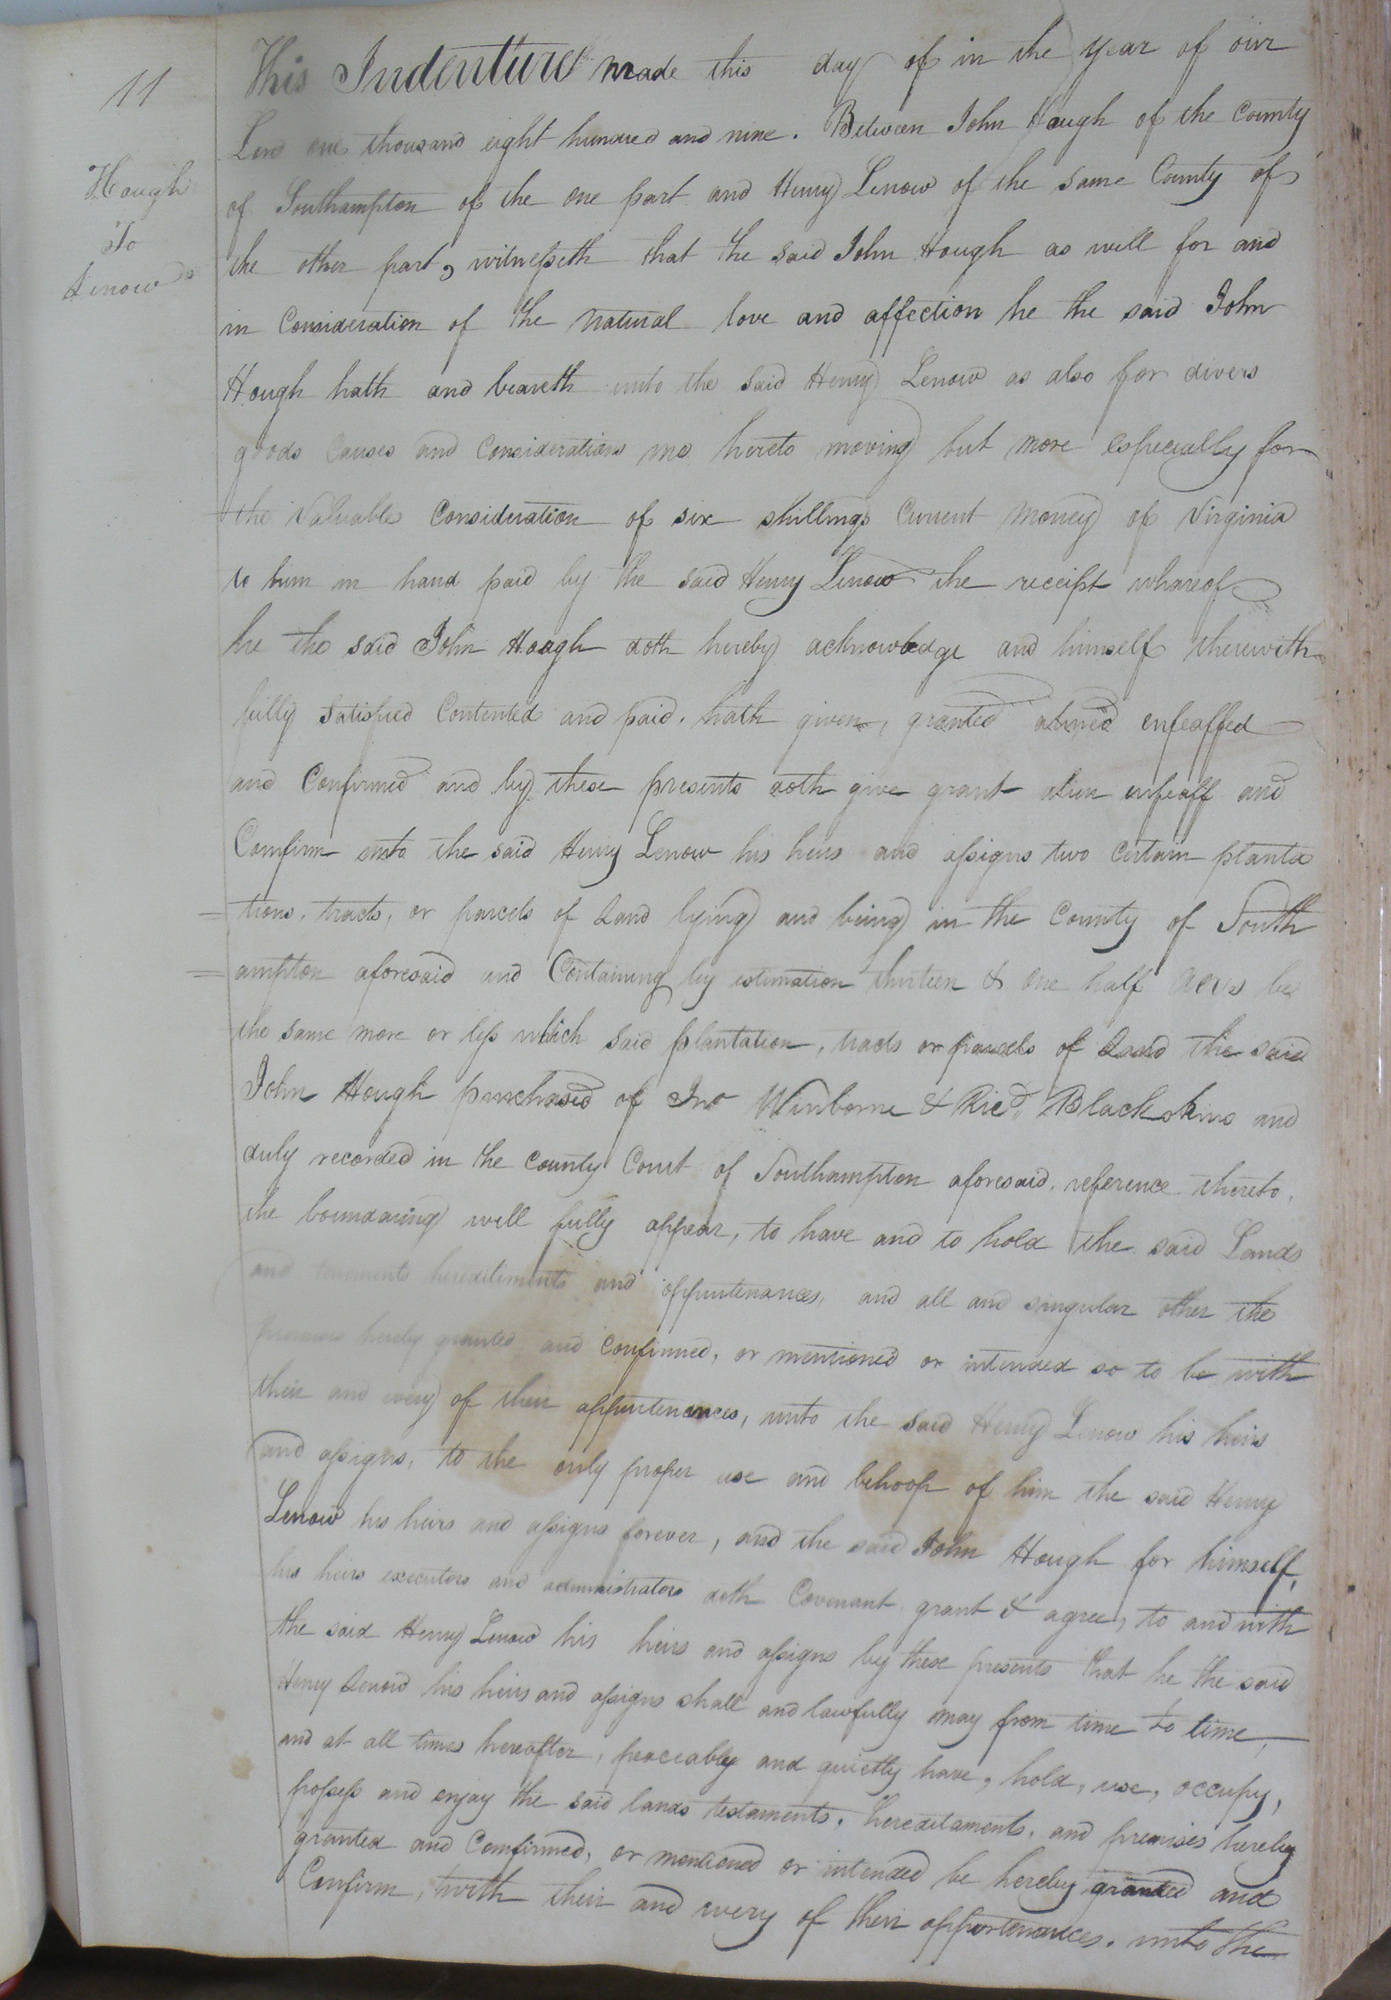 11
Hough
To
Lenow
This Indenture made this day of in the year of our
Lord one thousand eight hundred and nine. Between John Hough of the County
of Southampton of the one part and Henry Lenow of the same County of
the other part, witnesseth that the said John Hough as will for and
in Consideration of the natural love and affection he the said John
Hough hath and beareth unto the said Henry Lenow as also for divers
goods causes and Considerations me hereto moving but more especially for
the Valuable Consideration of six shillings Current money of Virginia
to him in hand paid by the said Henry Lenow the receipt whareof
he the said John Hough doth hereby acknowledge and himself therewith
fully Satisfied Contented and paid. hath given, granted aliened enfeaffed
and Confirmed and by these presents doth give grant alien enfeaff and
Comfirm unto the said Henry Lenow his heirs and assigns two certain planta
tions, tracts, or parcels of Land lying and being in the County of South
ampton aforesaid and Containing by estimation thirteen & one half acres be
the same more or less which said plantation, tracts or parcels of Land the said
John Hough purchased of Jno Winborne & Ricd. Blackshins and
duly recorded in the County Court of Southampton aforesaid. reference thereto.
the boundaring will fully appear, to have and to hold the said Lands
and tenements hereditiments and appurtenances, and all and singular other the
premises hereby granted and confirmed, or mentioned or intended so to be with
their and every of their appurtenances, unto the said Henry Lenow his heirs
and assigns, to the only proper use and behoof of him the said Henry
Lenow his heirs and assigns forever, and the said John Hough for himself,
his heirs executors and administrators doth Covenant grant & agree, to and with
the said Henry Lenow his heirs and assigns by these presents that he the said
Henry Lenow his heirs and assigns shall and lawfully may from time to time,
and at all times hereafter, peaceably and quietly have, hold, use, occupy,
possess and enjoy the said lands testaments. hereditaments. and premises hereby
granted and Comfirmed, or mentioned or intended be hereby granted and
Confirm, with their and every of their appurtenances. unto the